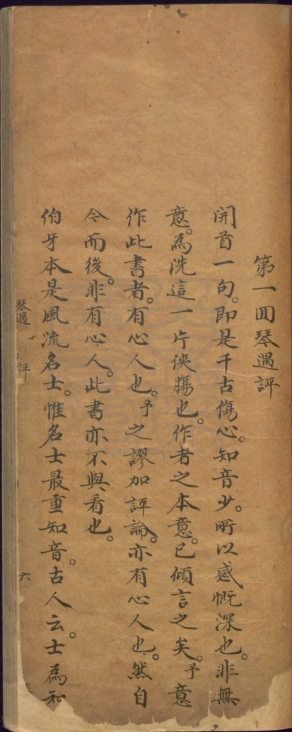 第一回琴遇評
開首一句。即是千古傷心。知音少。所以感慨深也。非無
意。為洗這一片俠腸也。作者之本意。已傾言之矣。予意
作此書者。有心人也。予之謬加評論。亦有心人也。然自
今而後。非有心人。此書亦不與看也。
伯牙本是風流名士。惟名士最重知音。古人云。士為知
琴遇 評 六